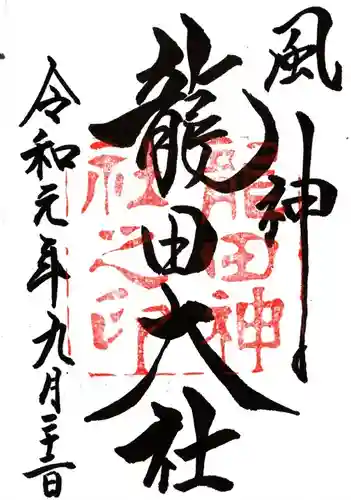 風神
龍田大社
龍田神
社之印
令和元年九月二十二日